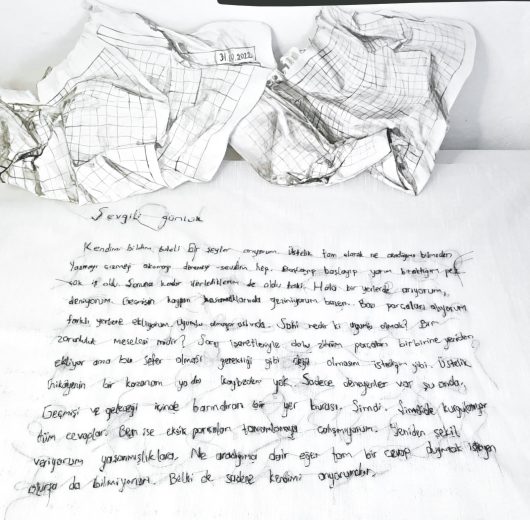 31.10.2022
Sevgili günlük
Kendimi bildim bileli bir şeyler arıyorum. Üstelik tam olarak ne aradığımı bilmeden
Yazmayı çizmeyi okumayı denemeyi sevdim hep. Başlayıp başlayıp yarım bıraktığım pek
çok iş oldu. Sonuna kadar ilerlediklerim de oldu tabi. Hala bir yerlerde arıyorum,
deniyorum. Geçmişin kaygan basamaklarında geziniyorum bazen. Bazı parçaları alıyorum
farklı yerlere ekliyorum. Uyumlu olmuyor aslında. Sahi nedir ki uyumlu olmak? Bir
zorunluluk meselesi midir? Soru işaretleriyle dolu zihnim parçaları birbirine yeniden
ekliyor ama bu sefer olması gerektiği gibi değil olmasını istediğim gibi. Üstelik
hikayenin bir kazananı ya da kaybedeni yok. Sadece deneyenler var şu anda.
Geçmişi ve geleceği içinde barındıran bir yer burası. Şimdi. Şimdide kurgulanıyor
tüm cevaplar. Ben ise eksik parçaları tamamlamaya çalışmıyorum. Yeniden şekil
veriyorum yaşanmışlıklara. Ne aradığıma dair eğer tam bir cevap duymak isteyen
olursa da bilmiyorum. Belki de sadece kendimi arıyorumdur.